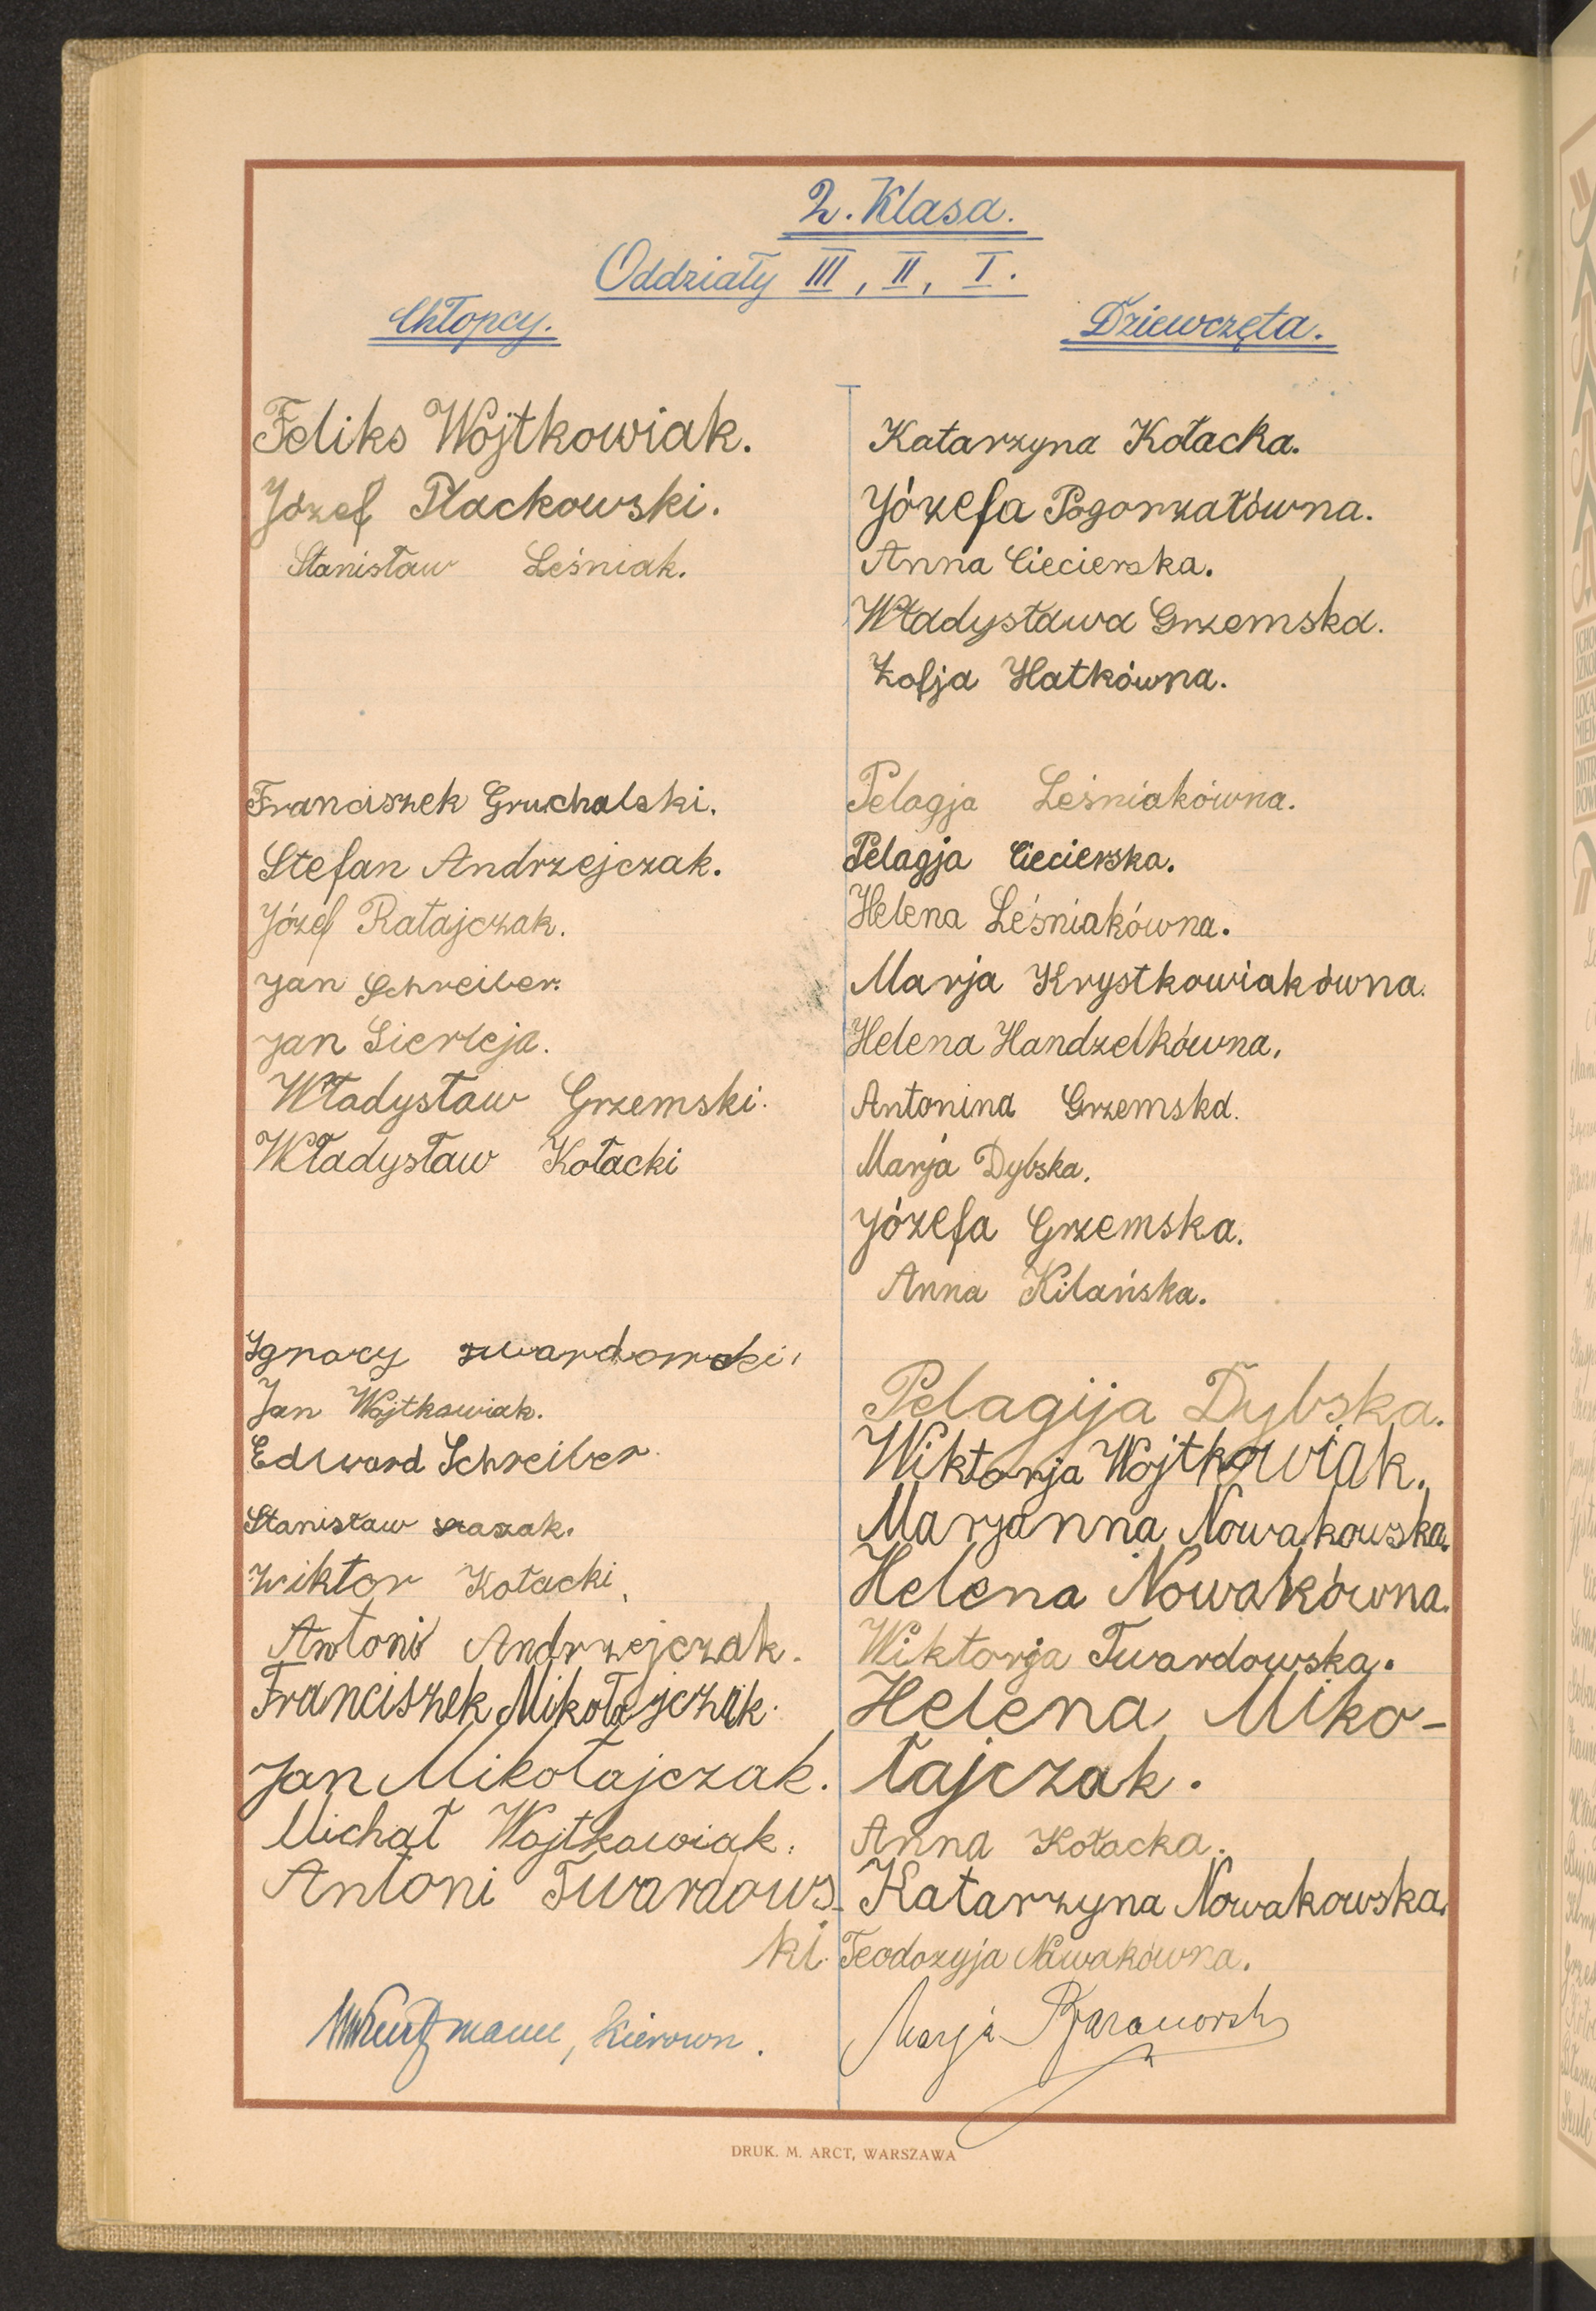 2. Klasa.
Oddziały III, II, I.
Chłopcy.
Feliks Wojtkowiak.
Józef Płackowski.
Stanisław Leśniak.
Franciszek Gruchalski.
Stefan Andrzejczak.
Józef Ratajczak.
Jan Schreiber.
Jan Sierleja.
Władysław Grzemski.
Władysław Kołacki
Ignacy
Jan Wojtkowiak.
Edward Schreiber.
Stanisław
Wiktor Kołacki,
Antoni Andrzejczak.
Franciszek Mikołajczak.
Jan Mikołajczak.
Michał Wojtkowiak.
Antoni Twardows-
ki.
kierown.
Dziewczęta.
Katarzyna Kołacka.
Józefa Pogorzałówna.
Anna Ciecierska.
Władysława Grzemska.
Zofja Hatkówna.
Pelagja Leśniakówna.
Pelagja Ciecierska.
Helena Leśniakówna.
Marja Krystkowiakówna.
Helena Handzelkówna,
Antonina Grzemska.
Marja Dybska.
Józefa Grzemska.
Anna Kilańska.
Pelagija Dybska.
Wiktorja Wojtkowiak.
Maryanna Nowakowska.
Helena Nowakówna.
Wiktorja Twardowska.
Helena Miko-
łajczak.
Anna Kołacka.
Katarzyna Nowakowska.
Teodozyja Nowakówna.
Marja
DRUK. M. ARCT, WARSZAWA